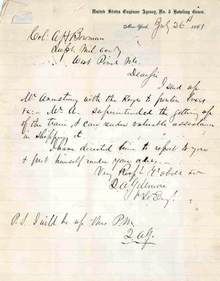 United States Engineer Agency, No. 5 Bowling Green,
New York, July 26th 1861
Col. A H Bowman
Supt Mil Acdy
West Point N.Y.
Dear Sir
I send up
Mr Armstrong with the
Mr A. superintended the getting up
of the train, & can render valuable assistance
in shipping it
I have directed him to report to you
& put himself under your orders
Very Respy Yr obdt Svt
Q A Gillmore
P.S. I will be up this P.M.
Q A G.